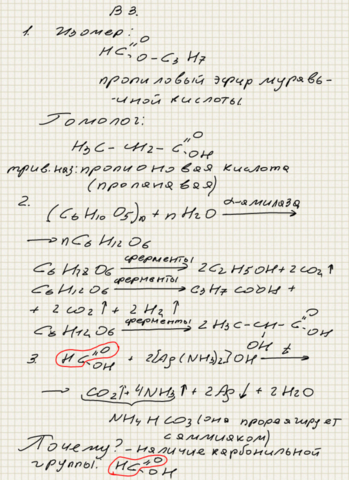 В 3.
1. Изомер:
HC=O
O-C3H7
пропиловый эфир муравь-
-иной кислоты
Гомолог:
H3C-CH2-C=O
OH
трив. наз: пропионовая кислота
(пропановая)
2.
(C6H10O5)n + nH2O α-амилаза →
→ nC6H12O6
C6H12O6 ферменты → 2C2H5OH + 2CO2↑
C6H12O6 ферменты → C3H7COOH +
+ 2CO2↑ + 2H2↑
C6H12O6 ферменты → 2H3C-CH-C=O
OH OH
3. HC=O OH + 2[Ag(NH3)2]OH t →
→ CO2↑ + 4NH3↑ + 2Ag↓ + 2H2O
NH4HCO3 (она прореагирует
с аммиаком)
Почему? - наличие карбонильной
группы. HC=O OH